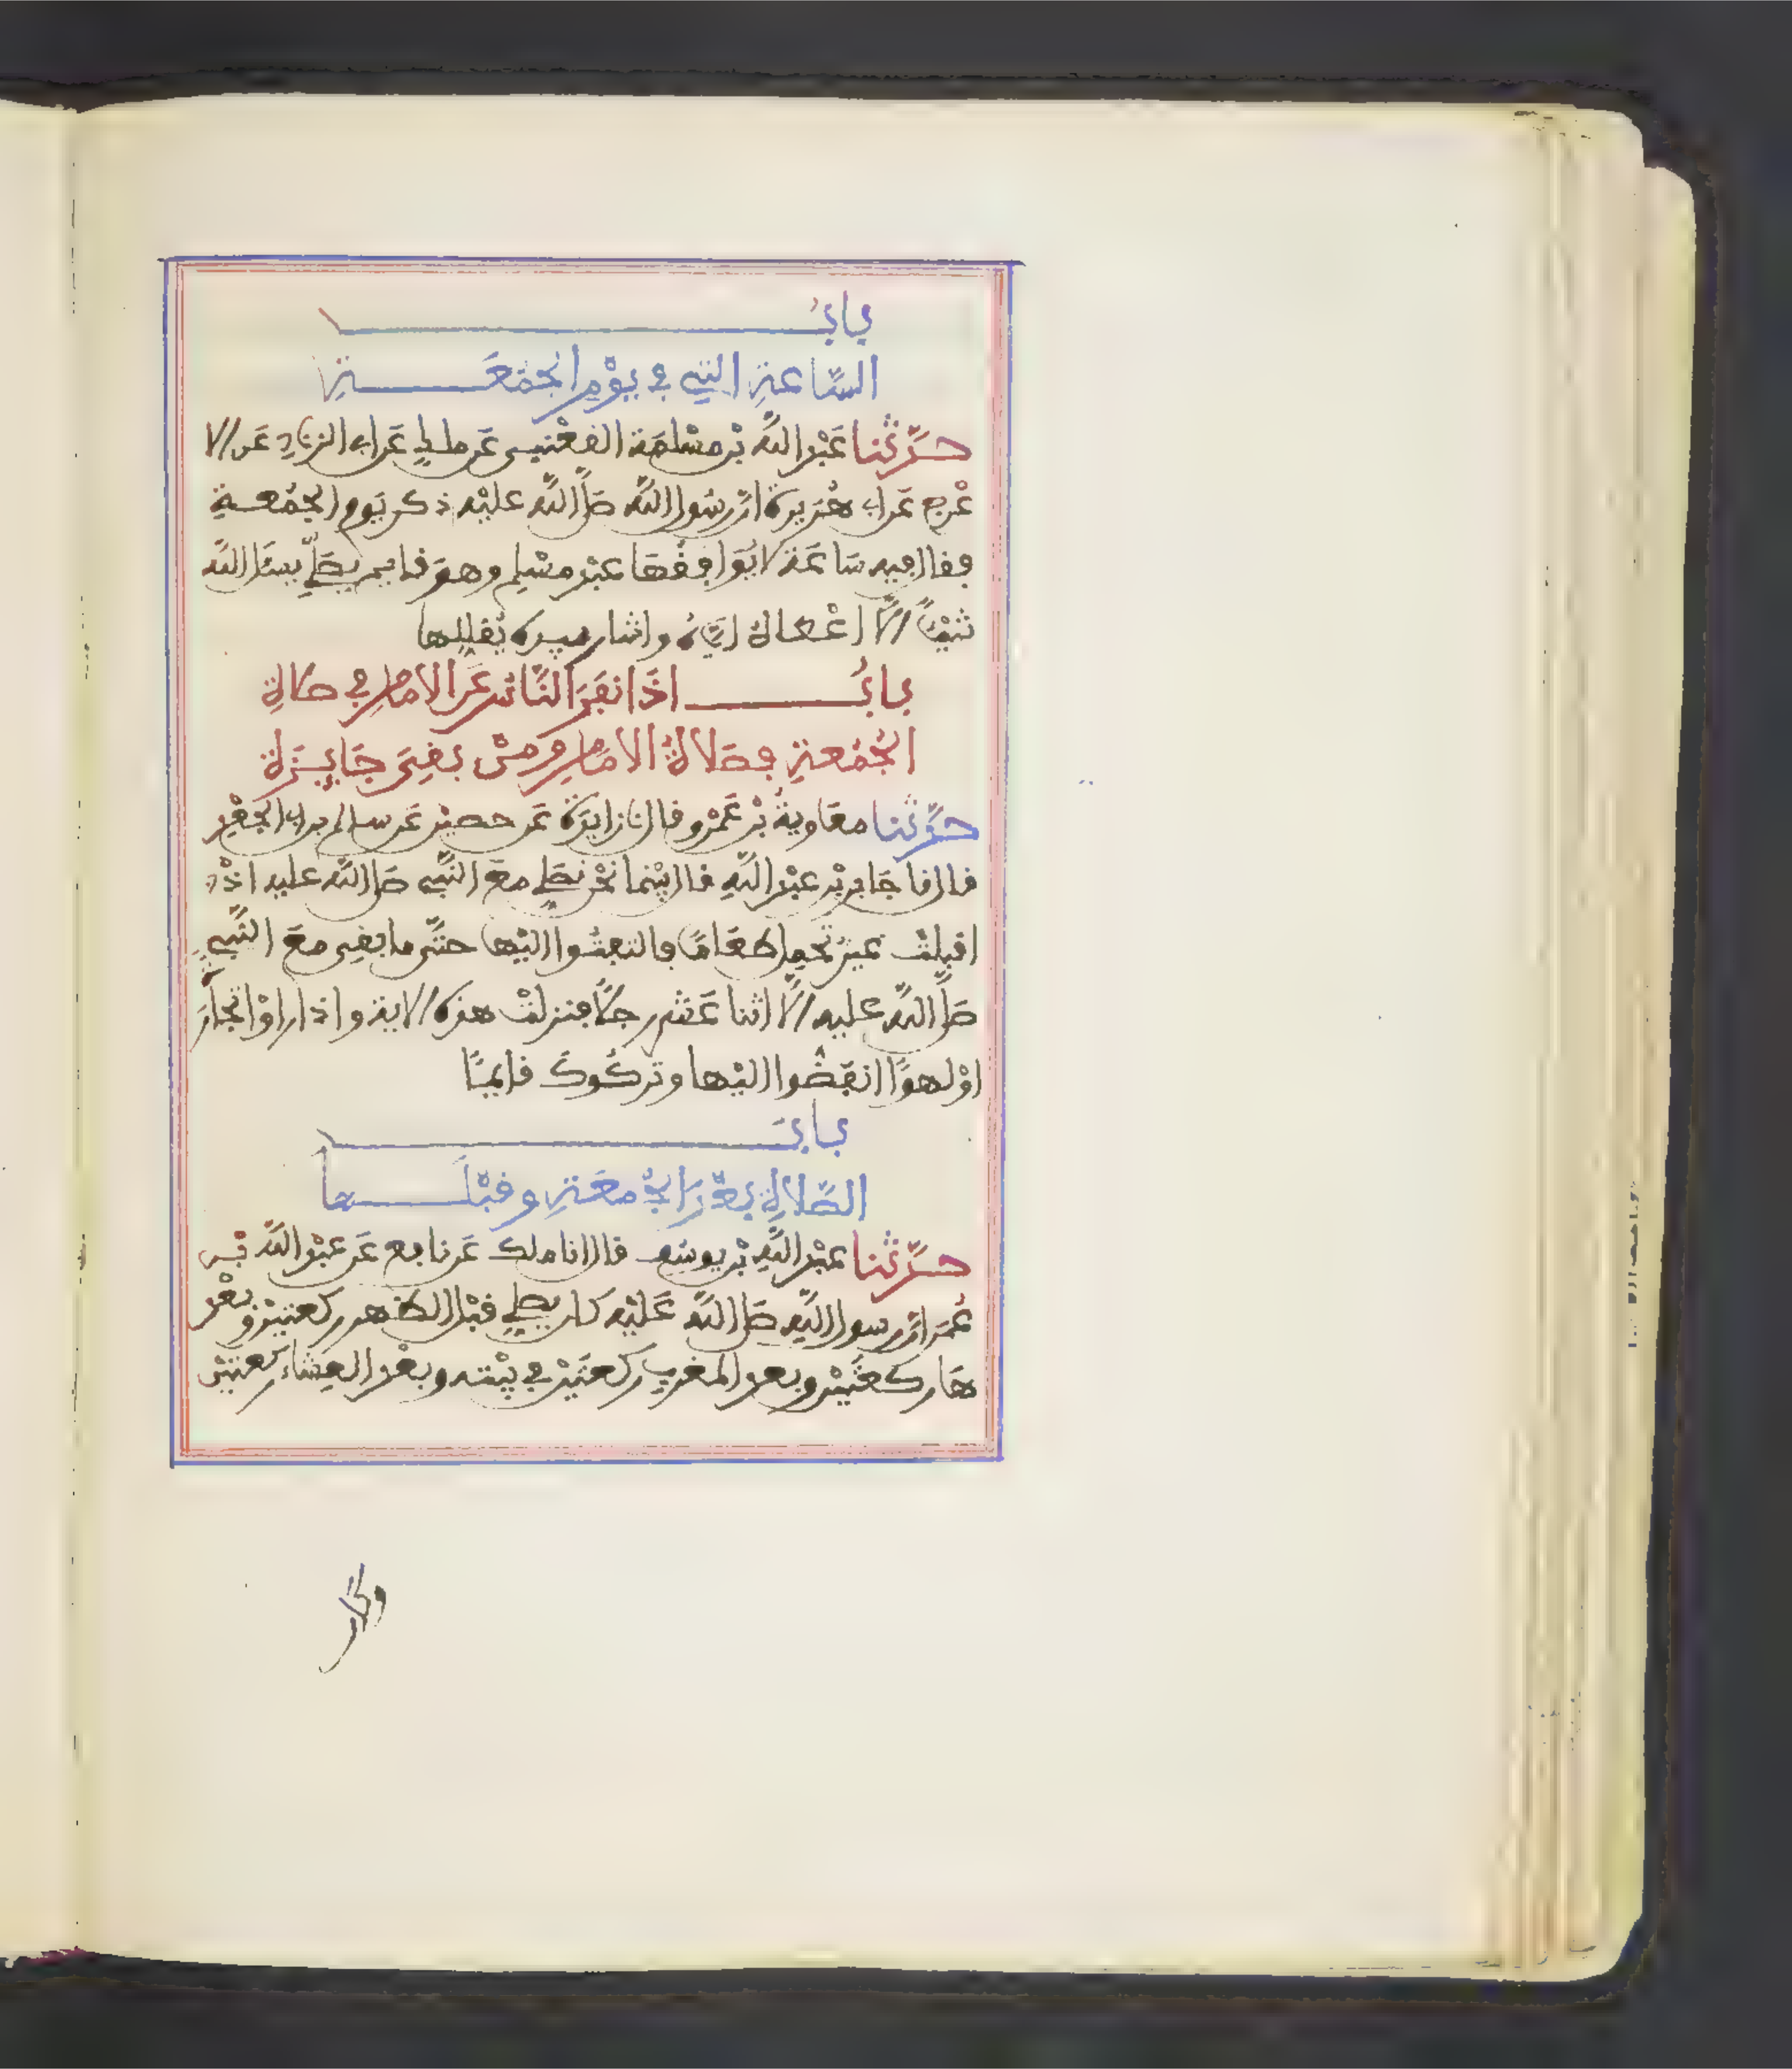 باب
الساعة التي في يوم الجمعة
حدثنا عبد الله بن مسلمة القعنبي عن ملك عن ابي الزناد عن الا
عرج عن ابي هريرة ان رسول الله صلى الله عليه ذكر يوم الجمعة
فقال فيه ساعة لا يوافقها عبد مسلم وهو قايم يصلي يسئل الله
شيئا الا اعطاه اياه واشار بيده يقللها
باب اذا نفر الناس عن الامام في صلاة
الجمعة فصلاة الامام ومن بقي جايزة
حدثنا معاوية بن عمرو قال نا زايدة عن حصين عن سالم بن ابي الجعد
قال نا جابر بن عبد الله قال بينما نحن نصلي مع النبي صلى الله عليه اذ
اقبلت عير تحمل طعاما فالتفتوا اليها حتى ما بقي مع النبي
صلى الله عليه الا اثنا عشر رجلا فنزلت هذه الاية واذا راوا تجارة
او لهوا انفضوا اليها وتركوك قايما
باب
الصلاة بعد الجمعة وقبلها
حدثنا عبد الله بن يوسف قال انا ملك عن نافع عن عبد الله بن
عمر ان رسول الله صلى الله عليه كان يصلي قبل الظهر ركعتين وبعد
ها ركعتين وبعد المغرب ركعتين في بيته وبعد العشاء ركعتين
وكان